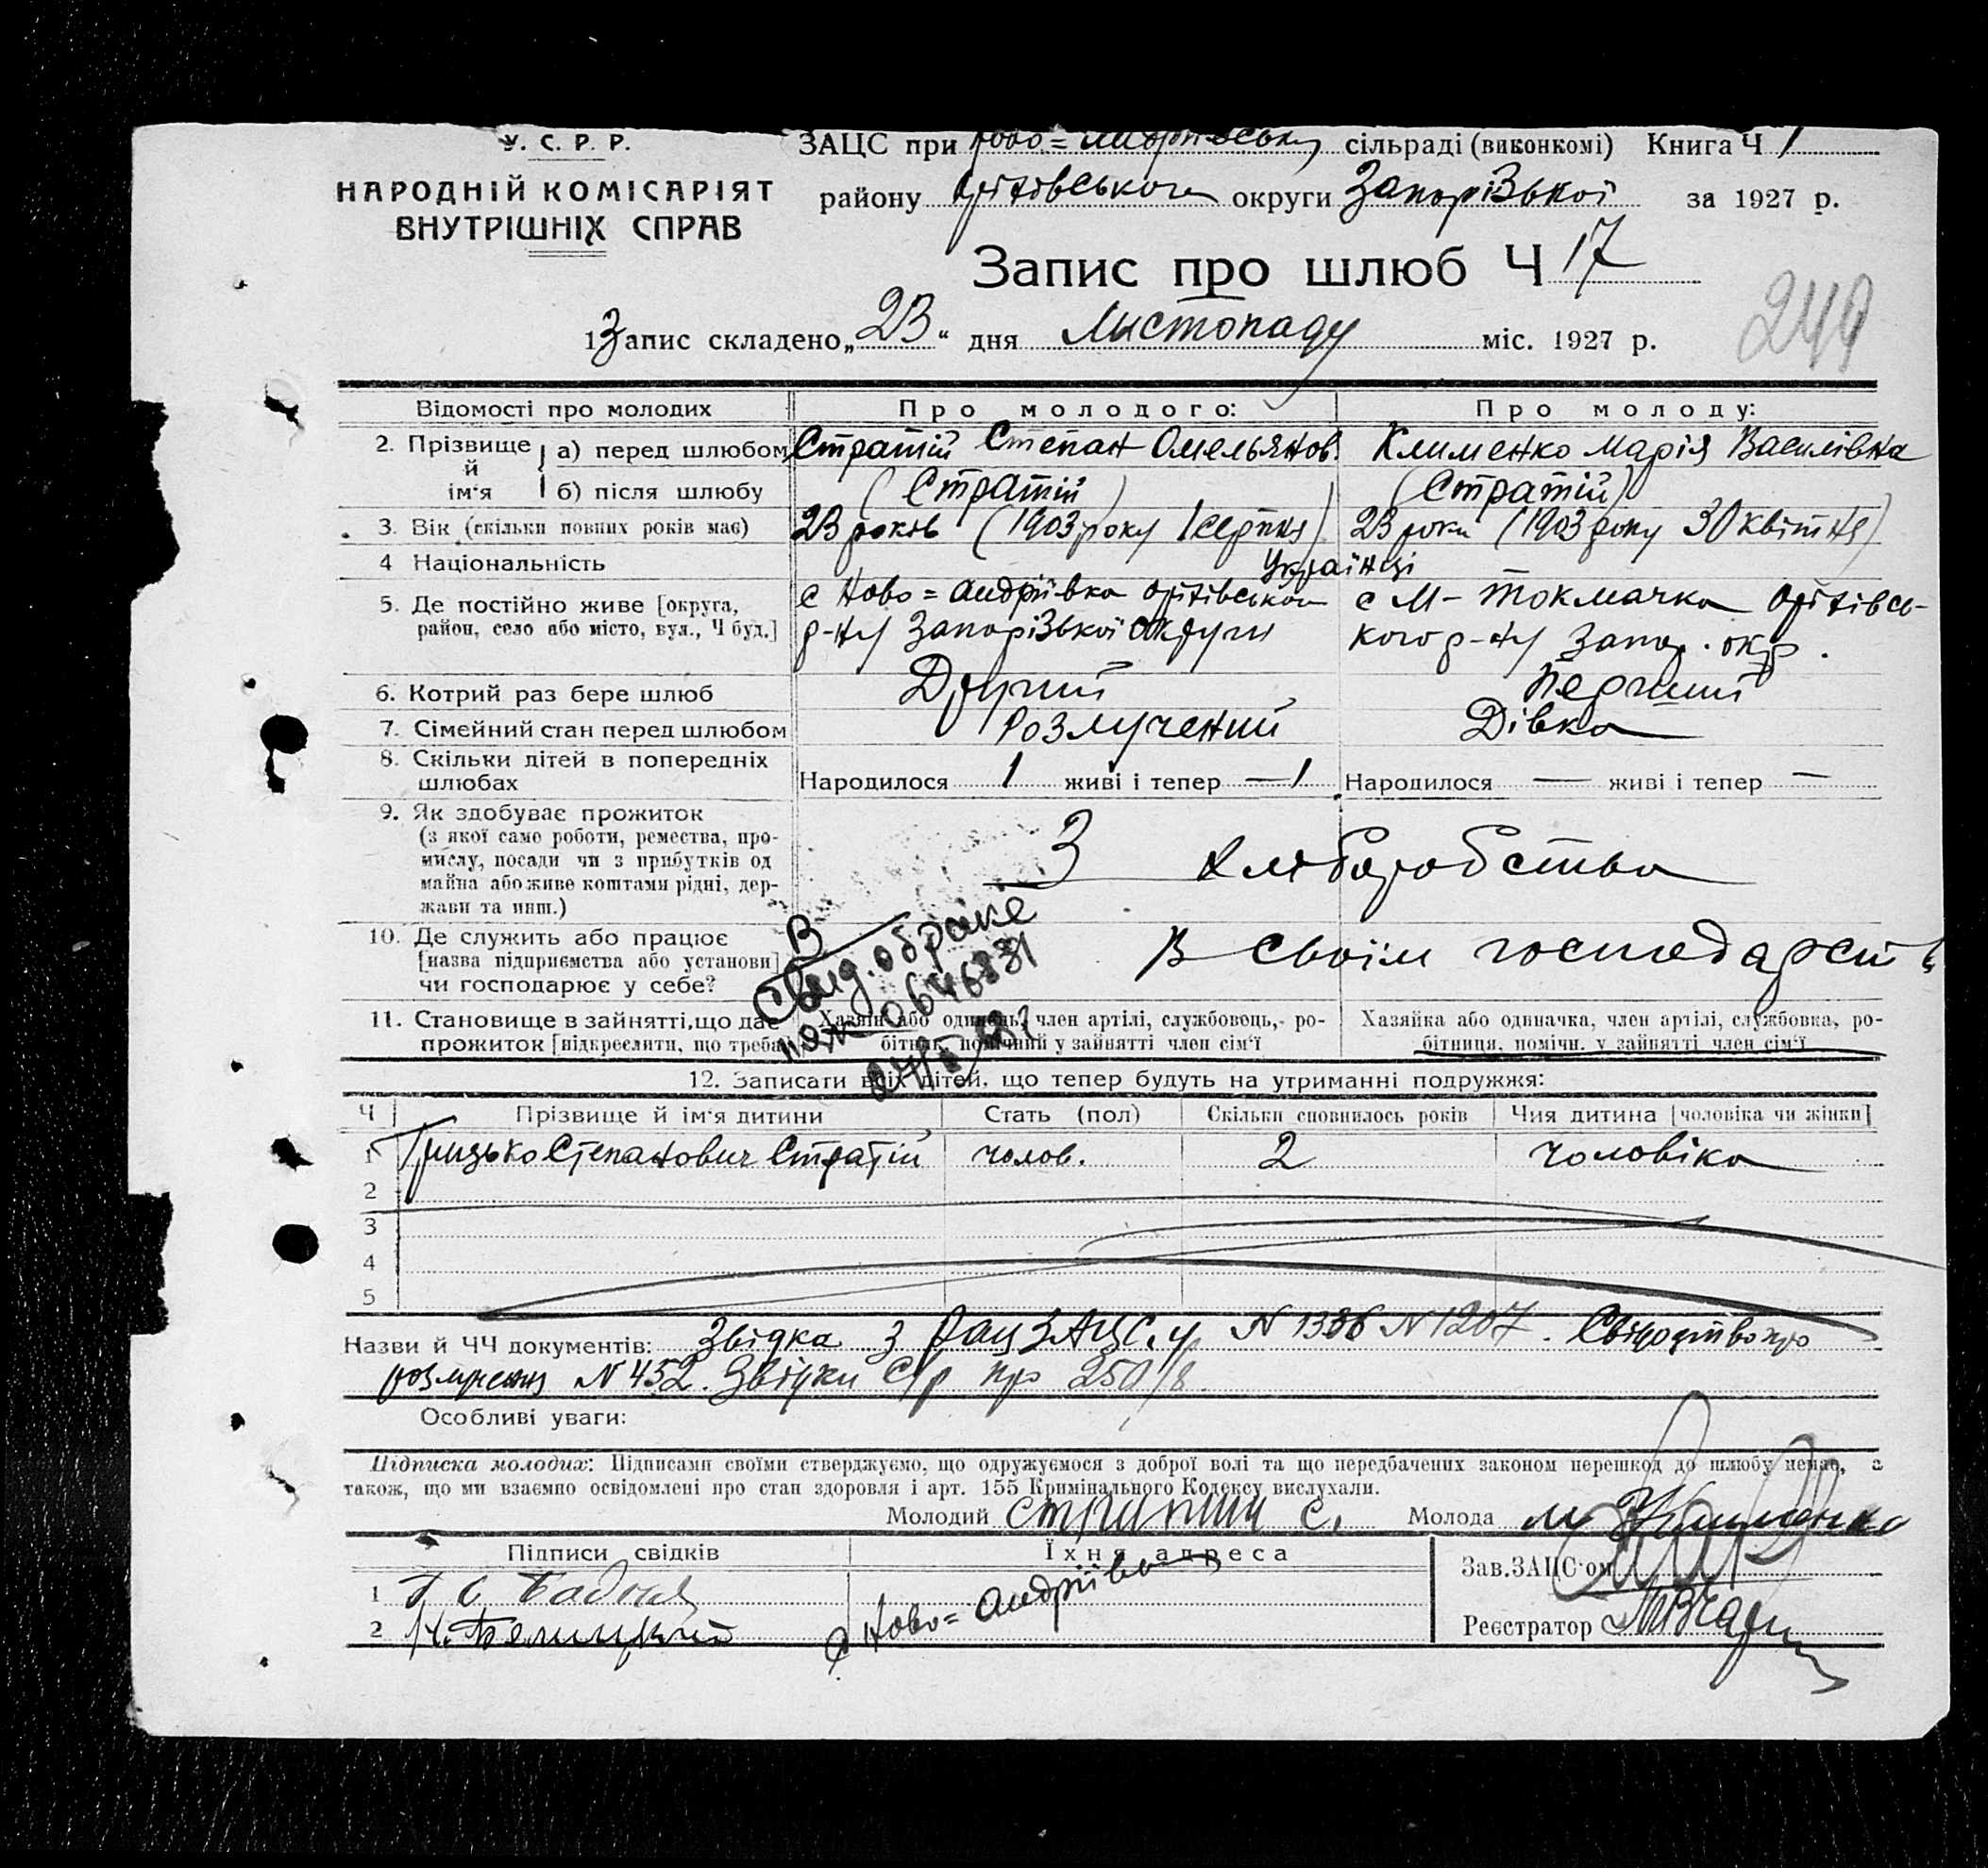 У. С. Р. Р.
НАРОДНІЙ КОМІСАРІЯТ
ВНУТРІШНІХ СПРАВ
ЗАЦС при Ново=Андріївській сільраді (виконкомі) Книга Ч 1
району Оріхівського округи Запорізької за 1927 р.
Запис про шлюб Ч 17
1 Запис складено „23“ дня Листопаду міс. 1927 р.
244
Відомості про молодих Про молодого: Про молоду:
2. Прізвище й ім'я а) перед шлюбом Стратій Степан Омельянов. Клименко Марія Василівна
б) після шлюбу (Стратій) (Стратій)
3. Вік (скільки повних років має) 23 років (1903 року 1 серпня) 23 роки (1903 року 30 квітня)
4 Національність Українці
5. Де постійно живе [округа, район, село або місто, вул., Ч буд.]
с Ново=Андріївка Оріхівського
р-ну Запорізької округи
с М-Токмачка Оріхівсь-
кого р-ну Запор. окр.
6. Котрий раз бере шлюб Другий Перший
7. Сімейний стан перед шлюбом Розлучений Дівка
8. Скільки дітей в попередніх шлюбах Народилося 1 живі і тепер — 1 Народилося — живі і тепер —
9. Як здобуває прожиток
(з якої саме роботи, ремества, про-
мислу, посади чи з прибутків од
майна або живе коштами рідні, дер-
жави та инш.)
З хліборобства
10. Де служить або працює
[назва підприємства або установи]
чи господарює у себе?
В своїм господарств
В
Свид. о браке
0646831
11. Становище в зайнятті, що дає
прожиток [підкреслити, що треба]
Хазяїн або одинець, член артілі, службовець, ро-
бітник, помічний у зайнятті член сім'ї
Хазяйка або одиначка, член артілі, службовка, ро-
бітниця, помічн. у зайнятті член сім'ї
12. Записати всіх дітей, що тепер будуть на утриманні подружжя:
Ч Прізвище й ім'я дитини Стать (пол) Скільки сповнилось років Чия дитина [чоловіка чи жінки]
1 Грицько Степанович Стратій чолов. 2 чоловіка
2
3
4
5
Назви й ЧЧ документів: Звідка з РайЗАЦС.у N 1336 N 1207. Свідоцтво про
розлучення N 452. Звідки С/р про
Особливі уваги:
Підписка молодих: Підписами своїми стверджуємо, що одружуємося з доброї волі та що передбачених законом перешкод до шлюбу немає, а
також, що ми взаємно освідомлені про стан здоровля і арт. 155 Кримінального Кодексу вислухали.
Молодий Стратий С. Молода М Клименко
Підписи свідків Їхня адреса
1
2 Белицкий
с Ново=Андріївка
Зав. ЗАЦС'ом
Реєстратор